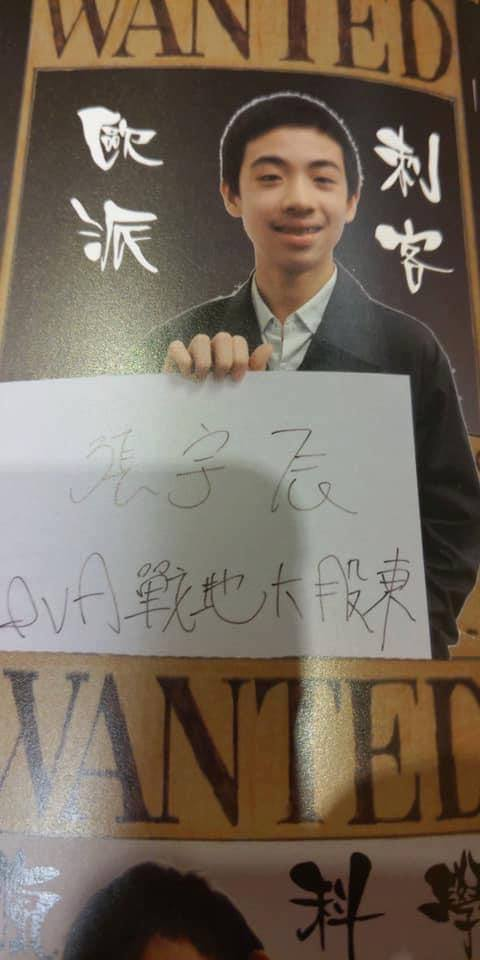 WANTED
歐派
刺客
張宇辰
DVA戰地大股東
WANTED
科學